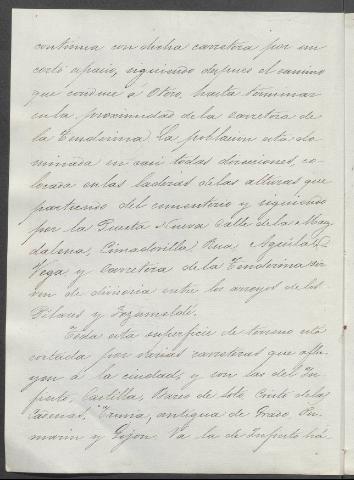 continua con dicha carretera por un
corto espacio, siguiendo despues el camino
que conduce á Otero, hasta terminar
en la proximidad de la carretera de
la Tenderina. La poblacion está do-
minada en casi todas direcciones, co-
locada en las laderas de las alturas que
partiendo del cementerio y siguiendo
por la Puerta Nueva Calle de la Mag-
dalena, Cimadevilla, Rua, Aguila,
Vega y carretera de la Tenderina sir-
ven de divisoria entre los arroyos de los
Pilares y
Toda esta superficie de terreno está
cortada por varias carreteras que aflu-
yen á la ciudad, y son las del In-
fiesto, Castilla, de Soto, Cristo de las
Cadenas, Trubia, antigua de Grado, Pu-
marin y Gijon. Va la de Infiesto há-